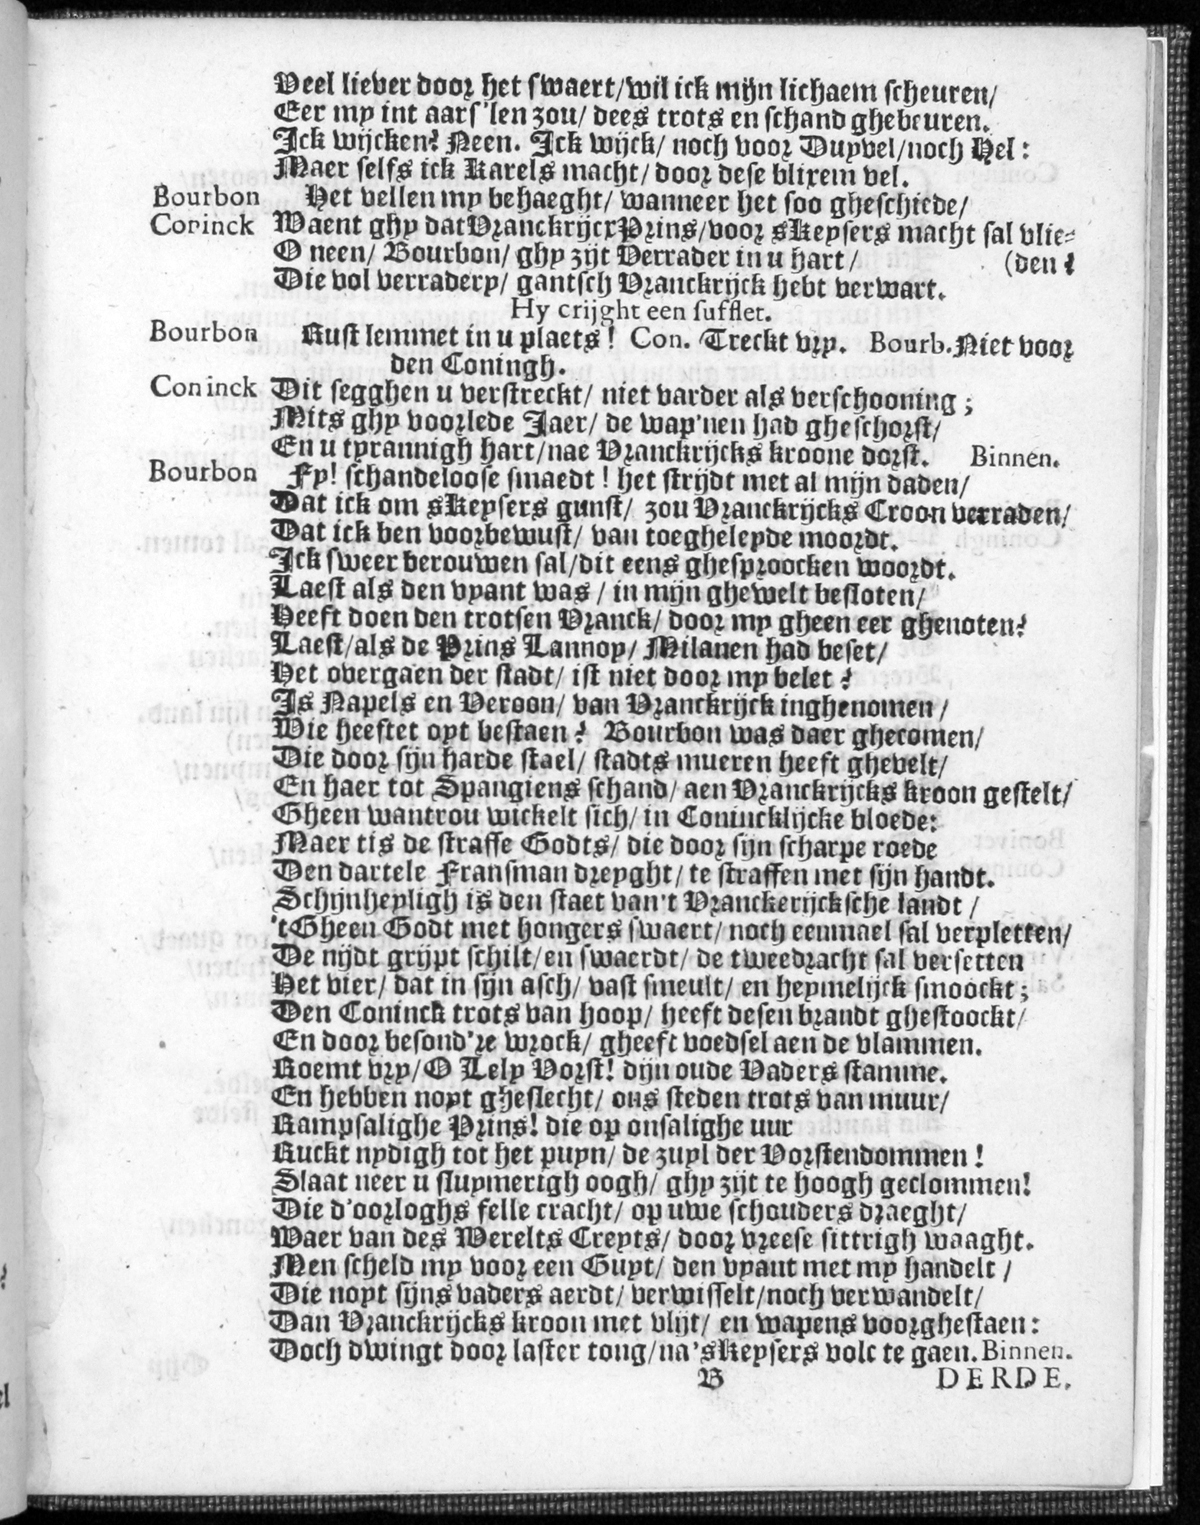 Veel liever door het swaert/wil ick mijn lichaem scheuren/
Eer my int aers'len zou/ dees trots en schand ghebeuren.
Ick wijcken? Neen. Ick wijck/ noch voor Duyvel/noch Hel:
Maer selfs ick Karels macht/ door dese blixem vel.
Bourbon Het vellen my behaeght/ wanneer het soo gheschiede/
Coninck Waent ghy dat Vranckrijcx Prins/voor sKeysers macht sal vlie-
O neen/ Bourbon/ ghy zijt Verrader in u hart/ (den?
Die vol verradery/ gantsch Vranckrijck hebt verwart.
Hy crijght een sufflet.
Bourbon Rust lemmet in u plaets! Con. Treckt vry. Bourb. Niet voor
den Coningh.
Coninck Dit segghen u verstreckt/ niet varder als verschooning;
Mits ghy voorlede Jaer/ de wap'nen had gheschorst/
En u tyrannigh hart/nae Vranckrijcks kroone dorst. Binnen.
Bourbon Fy! schandeloose smaedt! het strijdt met al mijn daden/
Dat ick om sKeysers gunst/ zou Vranckrijcks Croon verraden/
Dat ick ben voorbewust/ van toegheleyde moordt.
Ick sweer berouwen sal/dit eens ghesproocken woordt.
Laest als den vyant was/ in mijn ghewelt besloten/
Heeft doen den trotsen Vranck/ door my gheen eer ghenoten?
Laest/als de Prins Lannoy/ Milanen had beset/
Het overgaen der stadt/ ist niet door my belet?
Is Napels en Veroon/ van Vranckrijck inghenomen/
Wie heeftet oyt bestaen? Bourbon was daer ghecomen/
Die door sijn harde stael/ stadts mueren heeft ghevelt/
En haer tot Spangiens schand/ aen Vranckrijcks kroon gestelt/
Gheen wantrou wickelt sich/ in Conincklijcke bloede:
Maer tis de straffe Godts/ die door sijn scharpe roede
Den dartele Fransman dreyght/ te straffen met sijn handt.
Schijnheyligh is den staet van't Vranckerijcksche landt/
'tGheen Godt met hongers swaert/ noch eenmael sal verpletten/
De nijdt grijpt schilt/en swaerdt/ de tweedracht sal versetten
Het vier/ dat in sijn asch/ vast smeult/ en heymelijck smoockt;
Den Coninck trots van hoop/ heeft desen brandt ghestoockt/
En door besond're wrock/ gheeft voedsel aen de vlammen.
Roemt vry/O Lely Vorst! dijn oude Vaders stamme.
En hebben noyt gheslecht/ ons steden trots van muur/
Rampsalighe Prins! die op onsalighe uur
Ruckt nydigh tot het puyn/ de zuyl der Vorstendommen!
Slaat neer u sluymerigh oogh/ ghy zijt te hoogh geclommen!
Die d'oorloghs felle cracht/ op uwe schouders draeght/
Waer van des Werelts Creyts/ door vreese sittrigh waaght.
Men scheld my voor een Guyt/ den vyant met my handelt/
Die noyt sijns vaders aerdt/ verwisselt/noch verwandelt/
Dan Vranckrijcks kroon met vlijt/ en wapens voorghestaen:
Doch dwingt door laster tong/na'sKeysers volc te gaen. Binnen.
B DERDE.